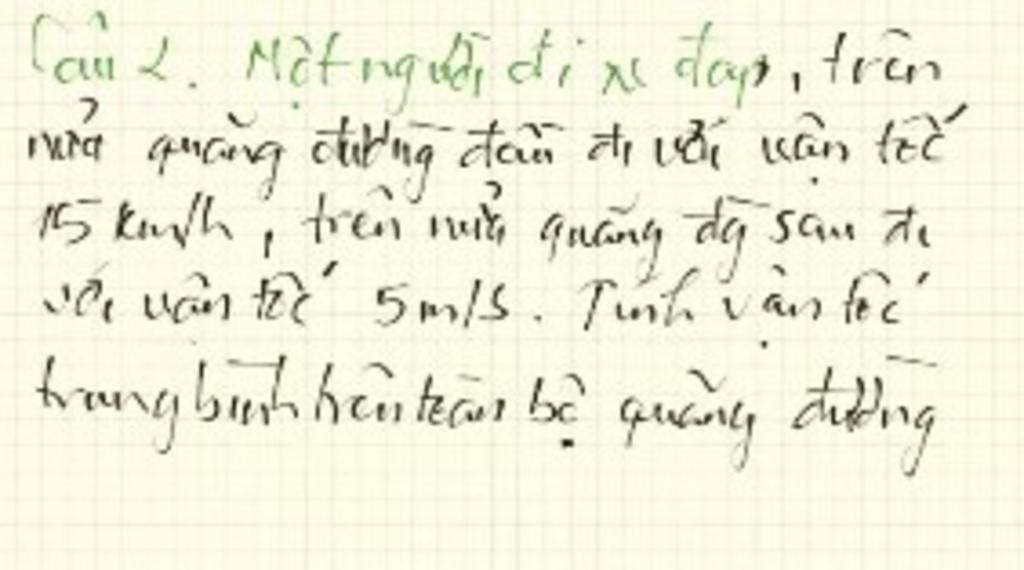 Câu 2. Một người đi xe đạp, trên
nửa quãng đường đầu đi với vận tốc
15 km/h, trên nửa quãng đg sau đi
với vận tốc 5 m/s. Tính vận tốc
trung bình trên toàn bộ quãng đường